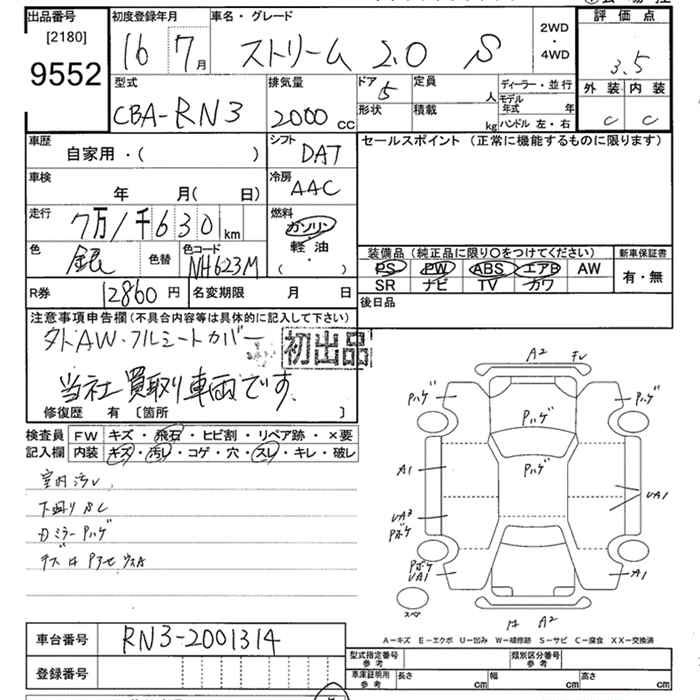 出品番号
[2180]
9552
初度登録年月
16 7月
車名・グレード
ストリーム 2.0 S
2WD
4WD
評価点
3.5
外装 内装
C C
型式
CBA-RN3
排気量
2000 cc
ドア 5
定員 人
形状
積載 kg
ディーラー・並行
モデル年式 年
ハンドル 左・右
車歴
自家用・( )
シフト
DAT
セールスポイント (正常に機能するものに限ります)
車検
年 月( 日)
冷房
AAC
走行
7万1千630km
燃料
ガソリン
軽油
( ・ )
色
銀
色替
色コード
NH623M
装備品 (純正品に限り○をつけてください)
PS PW ABS エアB AW
SR ナビ TV カワ
新車保証書
有・無
R券
12860円
名変期限 月 日
後日品
注意事項申告欄(不具合内容等は具体的に記入して下さい)
社外AW・フルシートカバー
初出品
当社買取り車両です.
修復歴 有 [箇所 ]
検査員記入欄
FW キズ・飛石・ヒビ割・リペア跡・×要
内装 キズ・汚レ・コゲ・穴・スレ・キレ・破レ
室内汚レ
下廻りサビ
ミラーPハゲ
A2
Pハゲ
Pハゲ
Pハゲ
Pハゲ
A1
UA1
UA3
Pボケ
Pボケ
UA1
A1
A2
スペア
A-キズ E-エクボ U-凹み W-補修跡 S-サビ C-腐食 XX-交換済
車台番号
RN3-2001314
登録番号
型式指定番号 参考
類別区分番号 参考
車庫証明用 参考
長さ cm
幅 cm
高さ cm